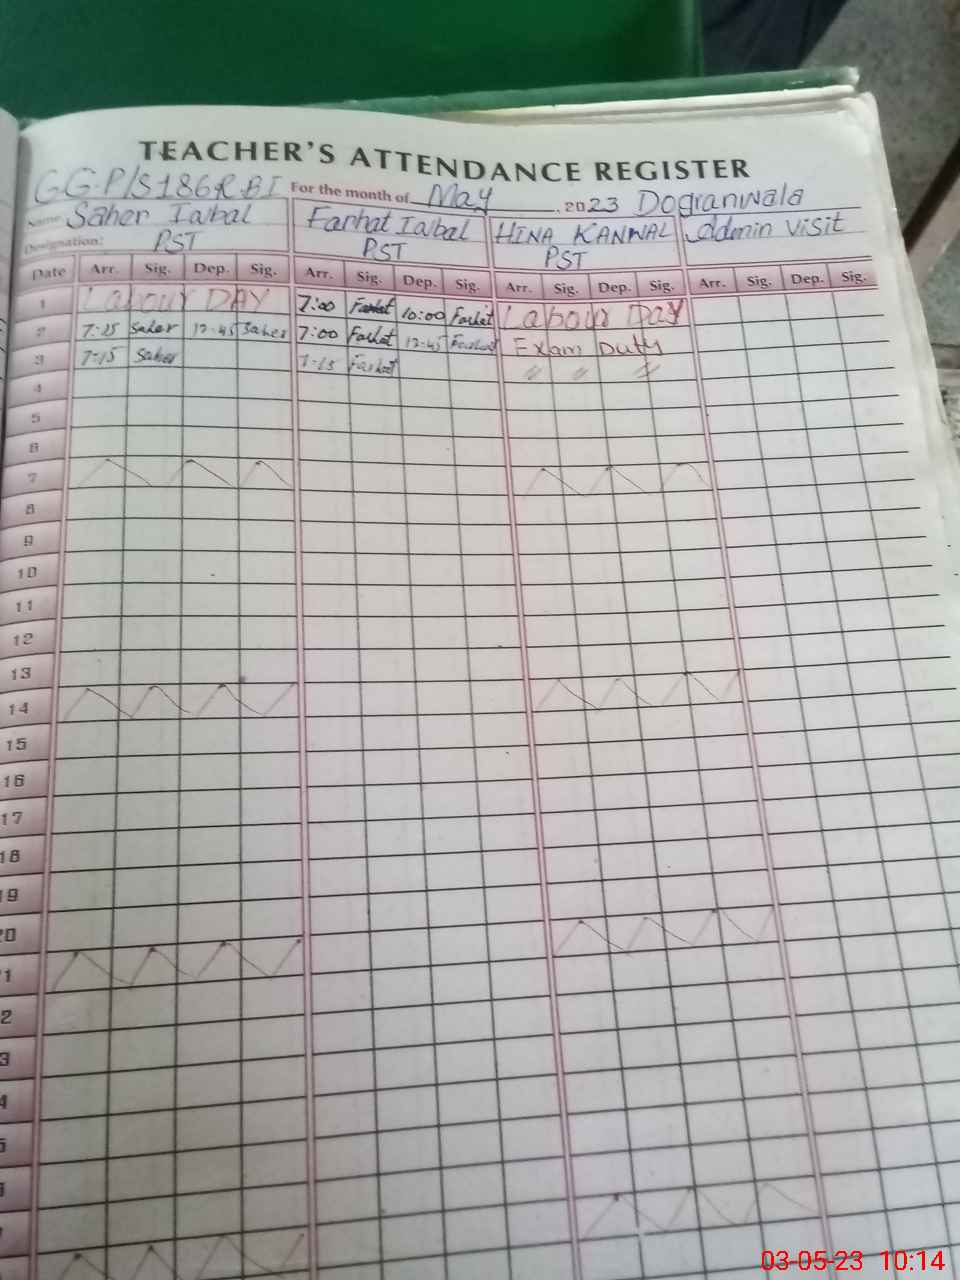 TEACHER'S ATTENDANCE REGISTER
G.G.P/S 186 R.B I For the month of May , 2023 Dogranwala
Name Saher Iqbal Farhat Iqbal HINA KANWAL Admin Visit
Designation: PST PST PST
Date Arr. Sig. Dep. Sig. Arr. Sig. Dep. Sig. Arr. Sig. Dep. Sig. Arr. Sig. Dep. Sig.
1 Labour DAY 7:00 Farhat 10:00 Farhat Labour Day
2 7:25 Saher 12-45 Saher 7:00 Farhat 12-45 Farhat Exam Duty
3 7-15 Saher 7-15 Farhat // // //
4
5
6
7
8
9
10
11
12
13
14
15
16
17
18
19
20
1
2
3
4
5
03-05-23 10:14